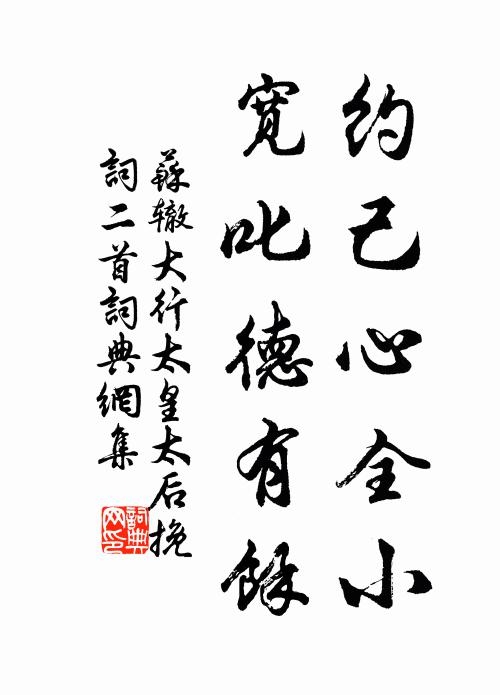 约己心全小
宽叱德有馀
蘇辙大行太皇太后挽
詞二首詞典網集
詞典
网印